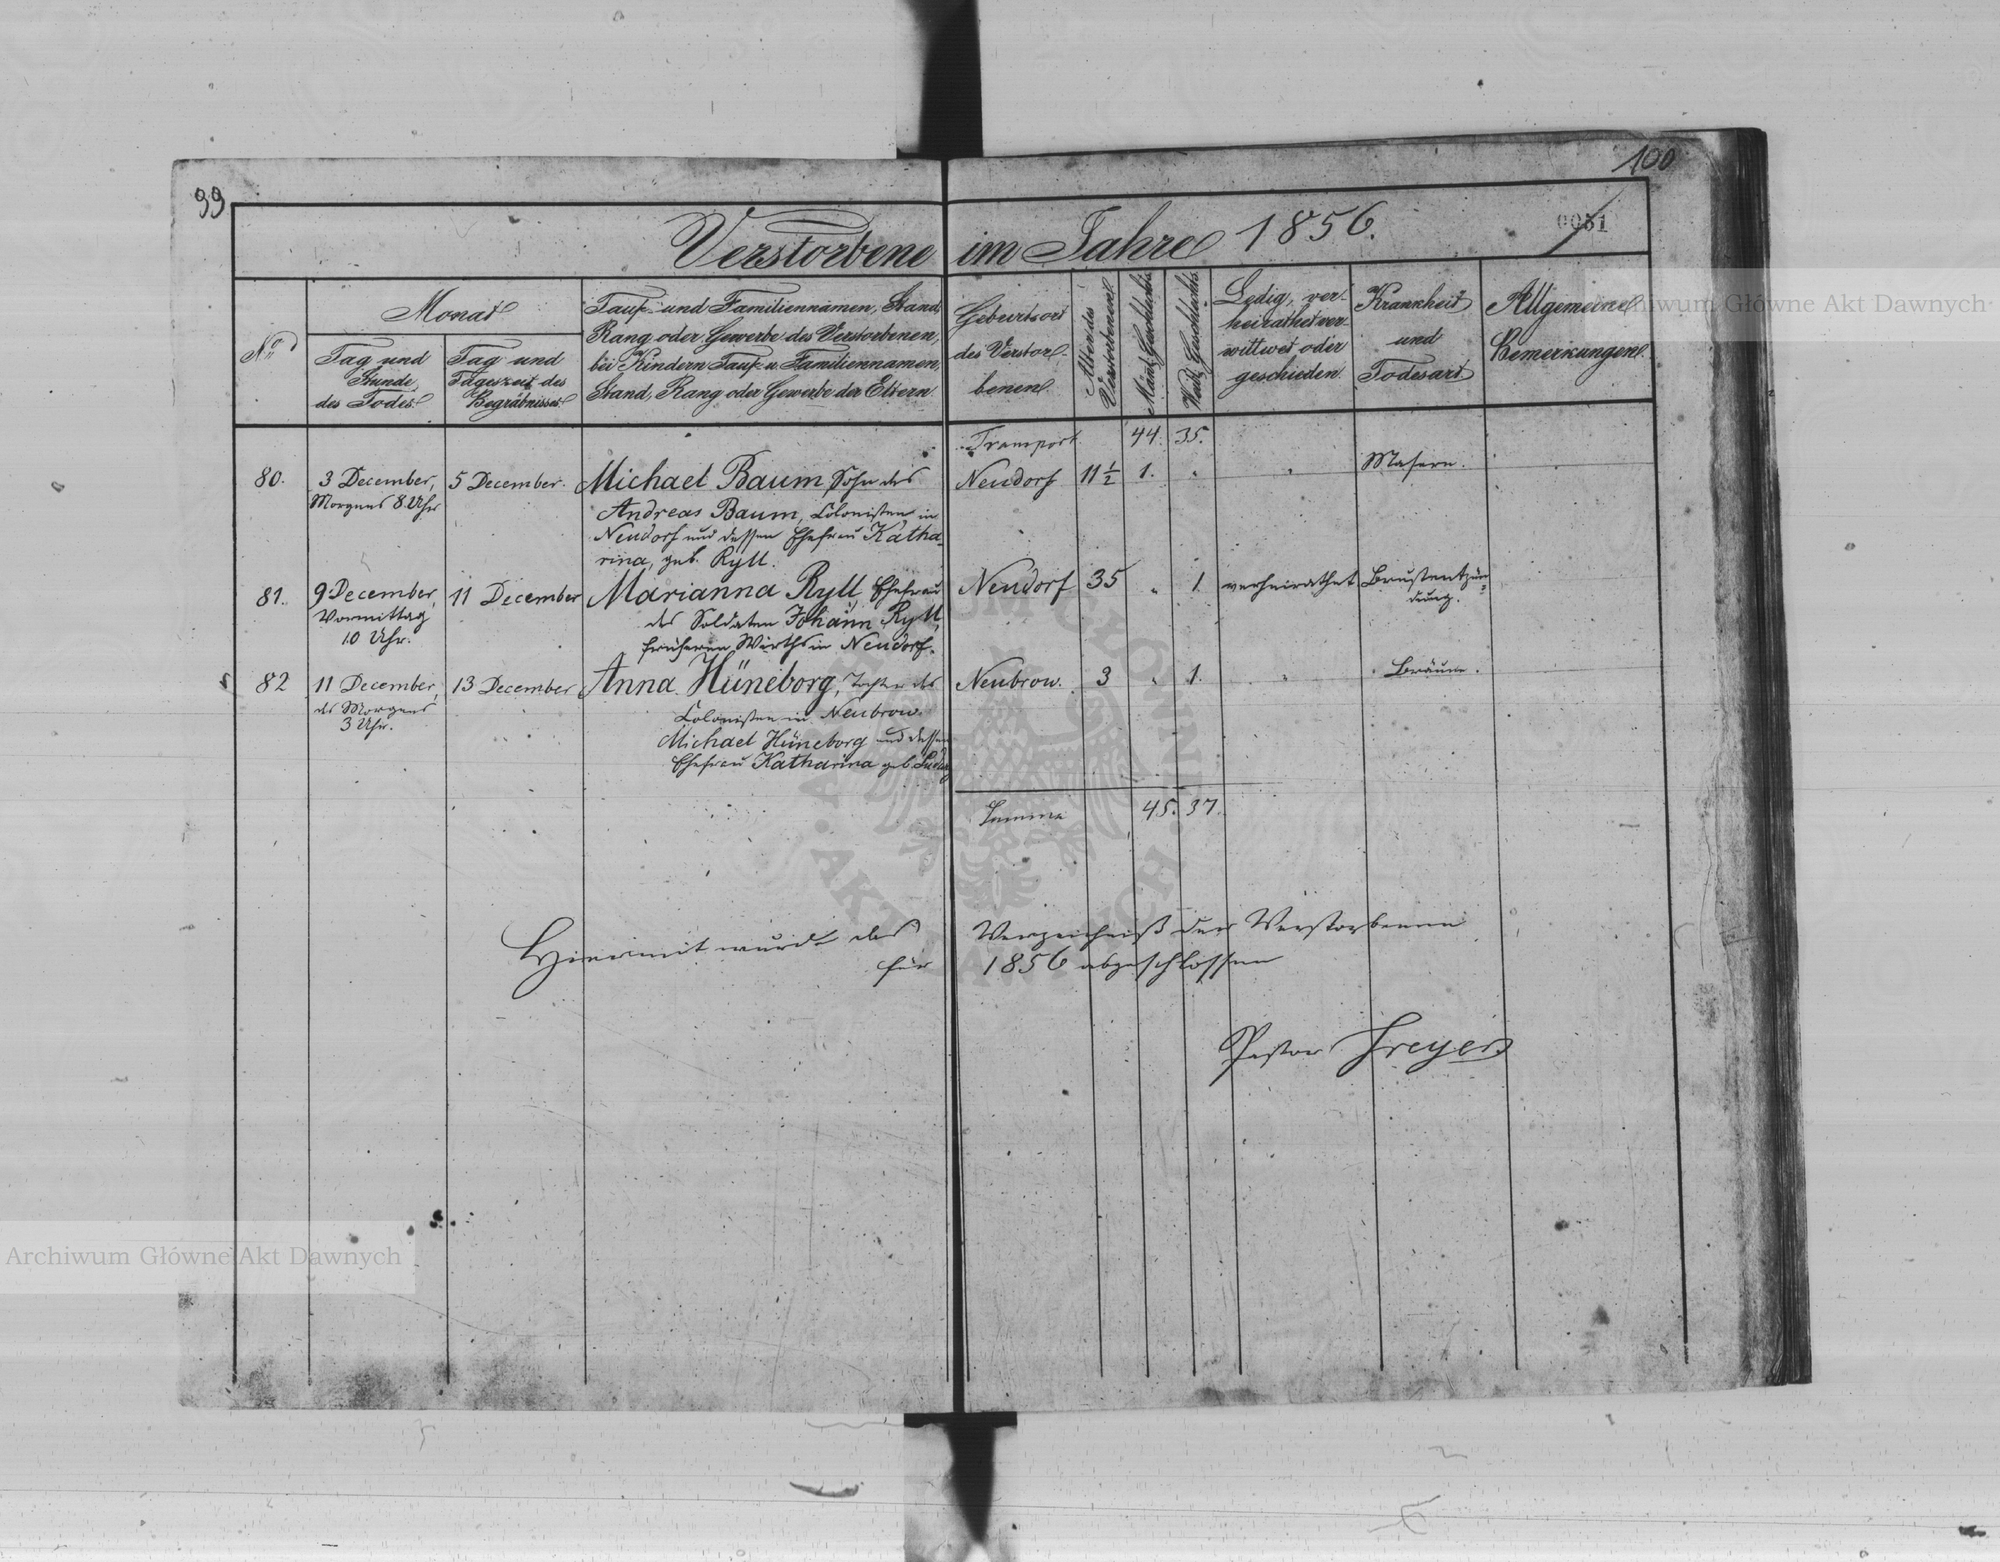 99
100
Verstorbene im Jahre 1856.
0051
No
Monat
Tag und
Stunde
des Todes.
Tag und
Tageszeit des
Begräbnisses.
Tauf- und Familiennamen, Stand,
Rang oder Gewerbe des Verstorbenen,
bei Kindern Tauf- u. Familiennamen,
Stand, Rang oder Gewerbe der Eltern.
Geburtsort
des Verstor-
benen.
Alter des
Verstorbenen.
Männl. Geschlechts.
Weibl. Geschlechts.
Ledig, ver-
heirathet ver-
wittwet oder
geschieden.
Krankheit
und
Todesart
Allgemeine
Bemerkungen.
Transport. 44. 35.
80. 3 December, 5 December. Michael Baum, Sohn des Neudorf 11 1/2 1. " " Masern.
Morgens 8 Uhr
Andreas Baum, Colonisten in
Neudorf und dessen Ehefrau Katha-
rina, geb. Ryll.
81. 9 December, 11 December Marianna Ryll, Ehefrau Neudorf 35 " 1 verheirathet Brustentzün-
dung.
Vormittag
10 Uhr.
des Soldaten Johann Ryll,
früheren Wirths in Neudorf.
82 11 December, 13 December Anna Hüneborg, Tochter des Neubrow. 3 " 1. " Bräune.
des Morgens
3 Uhr.
Colonisten in Neubrow
Michael Hüneborg und dessen
Ehefrau Katharina geb. Ludwig
Summa 45. 37.
Hiermit wurde das Verzeichniß der Verstorbenen
für 1856 abgeschlossen
Pastor Freyer
Archiwum Główne Akt Dawnych
Archiwum Główne Akt Dawnych